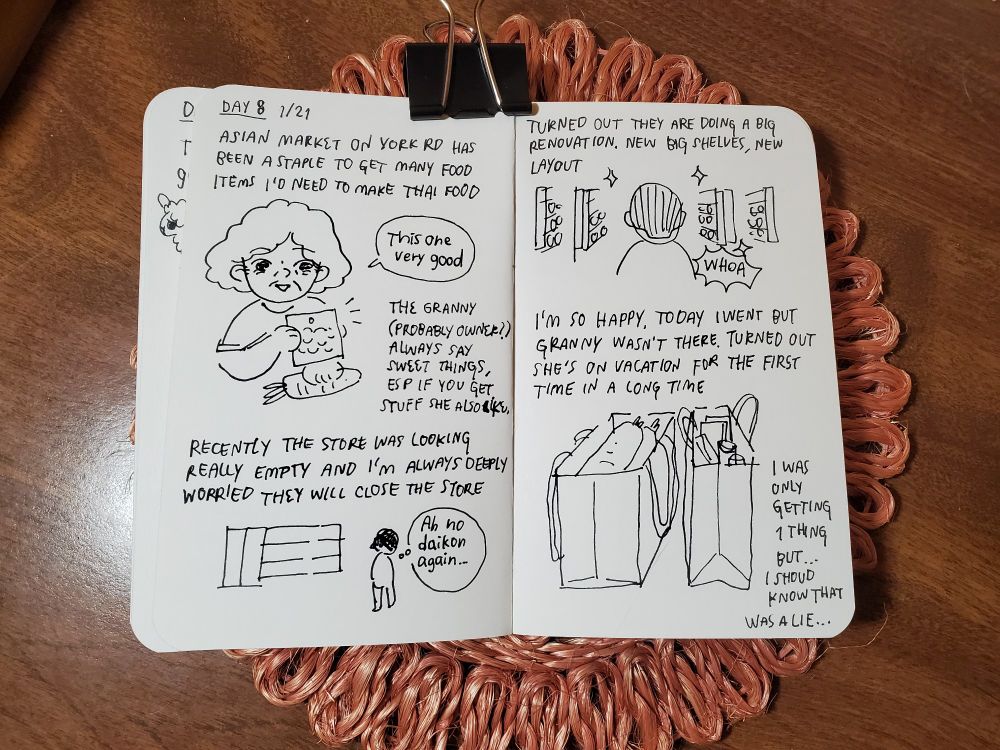 DAY 8 1/21
ASIAN MARKET ON YORK RD HAS
BEEN A STAPLE TO GET MANY FOOD
ITEMS I'D NEED TO MAKE THAI FOOD
This one
very good
THE GRANNY
(PROBABLY OWNER?)
ALWAYS SAY
SWEET THINGS,
ESP IF YOU GET
STUFF SHE ALSO LIKE.
RECENTLY THE STORE WAS LOOKING
REALLY EMPTY AND I'M ALWAYS DEEPLY
WORRIED THEY WILL CLOSE THE STORE
Ah no
daikon
again...
TURNED OUT THEY ARE DOING A BIG
RENOVATION. NEW BIG SHELVES, NEW
LAYOUT
WHOA
I'M SO HAPPY. TODAY I WENT BUT
GRANNY WASN'T THERE. TURNED OUT
SHE'S ON VACATION FOR THE FIRST
TIME IN A LONG TIME
I WAS
ONLY
GETTING
1 THING
BUT...
I SHOUD
KNOW THAT
WAS A LIE...